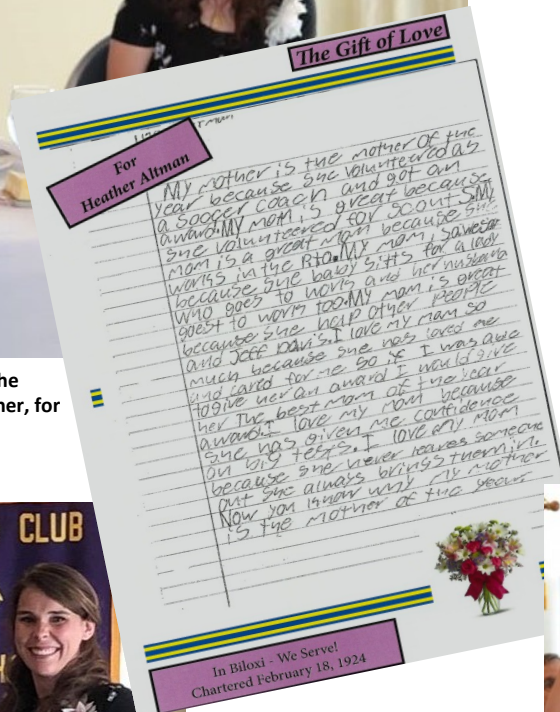 The Gift of Love
For
Heather Altman
My mother is the mother of the
year because she volunteered as
a soccer coach and got an
award. My mom is great because
she volunteered for scouts. My
mom is a great mom because she
works in the Pto. My mom is
because she baby sitts for a lady
who goes to works and her husband
goest to works too. My mom is great
because she help other people
and Jeff Davis. I love my mom so
much because she has loved me
and cared for me so if I was able
to give her an award I would give
her The best mom of the year
award. I love my mom because
she has given me confidence
on big tests. I love my mom
because she never leaves someone
out she always brings them in.
Now you know why my mother
is the mother of the year!
he
her, for
CLUB
In Biloxi - We Serve!
Chartered February 18, 1924